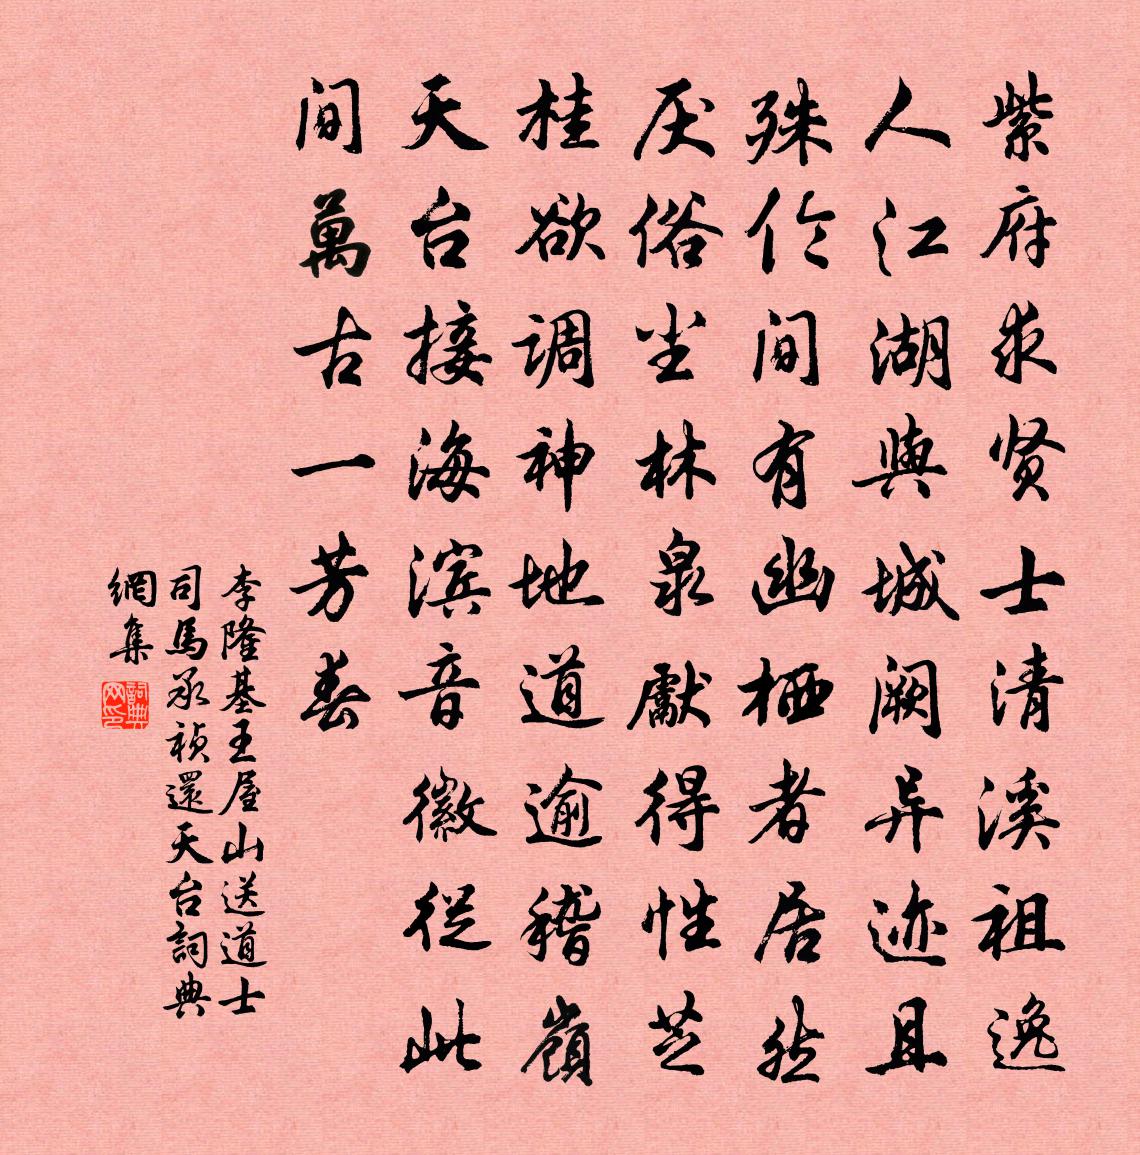 紫府求贤士清溪祖逸
人江湖與城阙异迹且
殊伦间有幽栖者居然
厌俗尘林泉獻得性芝
桂欲调神地道逾稽嶺
天台接海滨音徽從此
间萬古一芳春
李隆基王屋山送道士
司馬承祯還天台詞典
網集
詞典网印